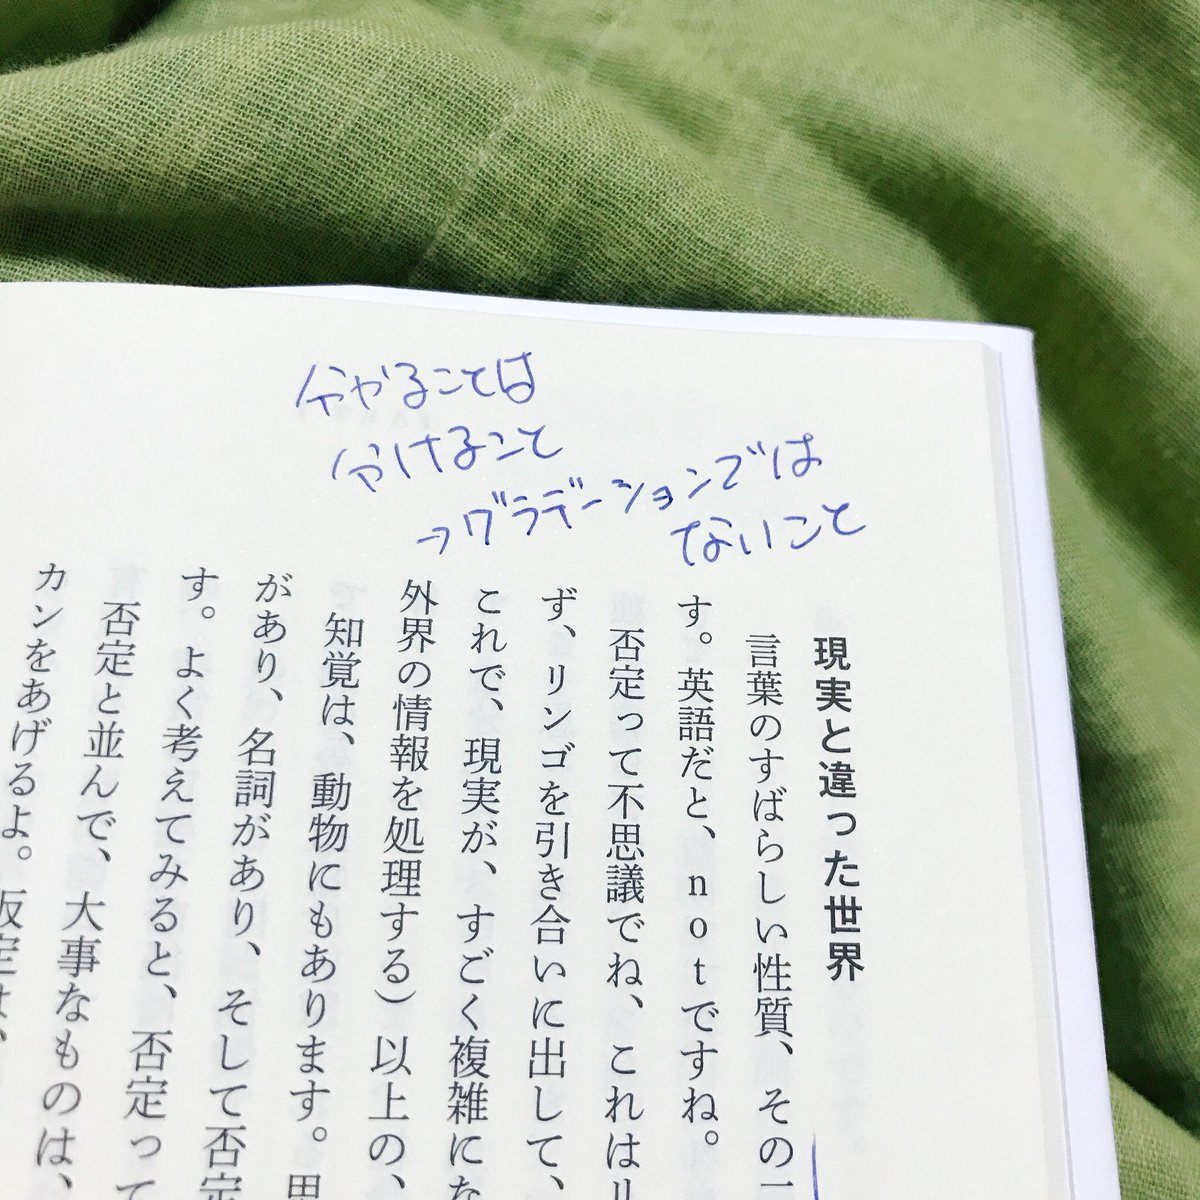 分かることは
分けること
→グラデーションでは
ないこと
現実と違った世界
言葉のすばらしい性質、その一
す。英語だと、notですね。
否定って不思議でね、これはリ
ず、リンゴを引き合いに出して、
これで、現実が、すごく複雑にな
外界の情報を処理する）以上の、
知覚は、動物にもあります。思
があり、名詞があり、そして否
す。よく考えてみると、否定って
否定と並んで、大事なものは、
カンをあげるよ。仮定は、